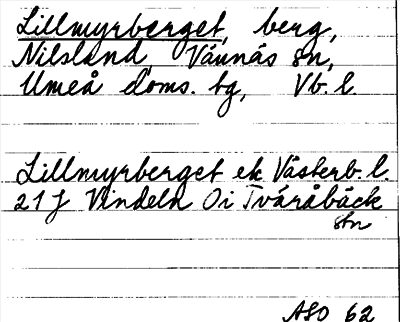 Lillmyrberget, berg,
Nilsland, Vännäs sn,
Umeå doms. tg, Vb. l.
Lillmyrberget ek Västerb. l.
21J Vindeln Oi Tväråbäck
stn
ASO 62